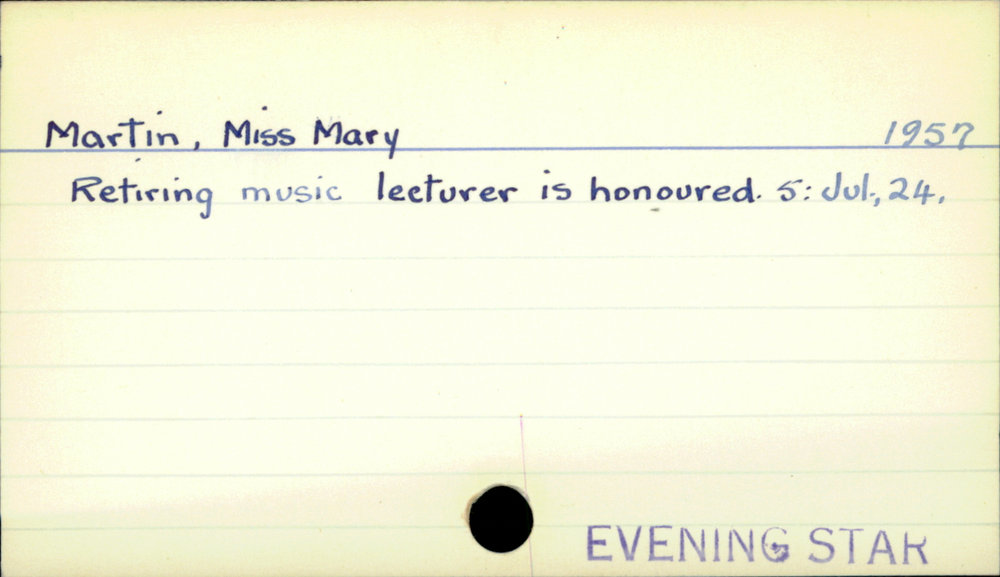 Martin, Miss Mary 1957
Retiring music lecturer is honoured. 5: Jul., 24.
EVENING STAR